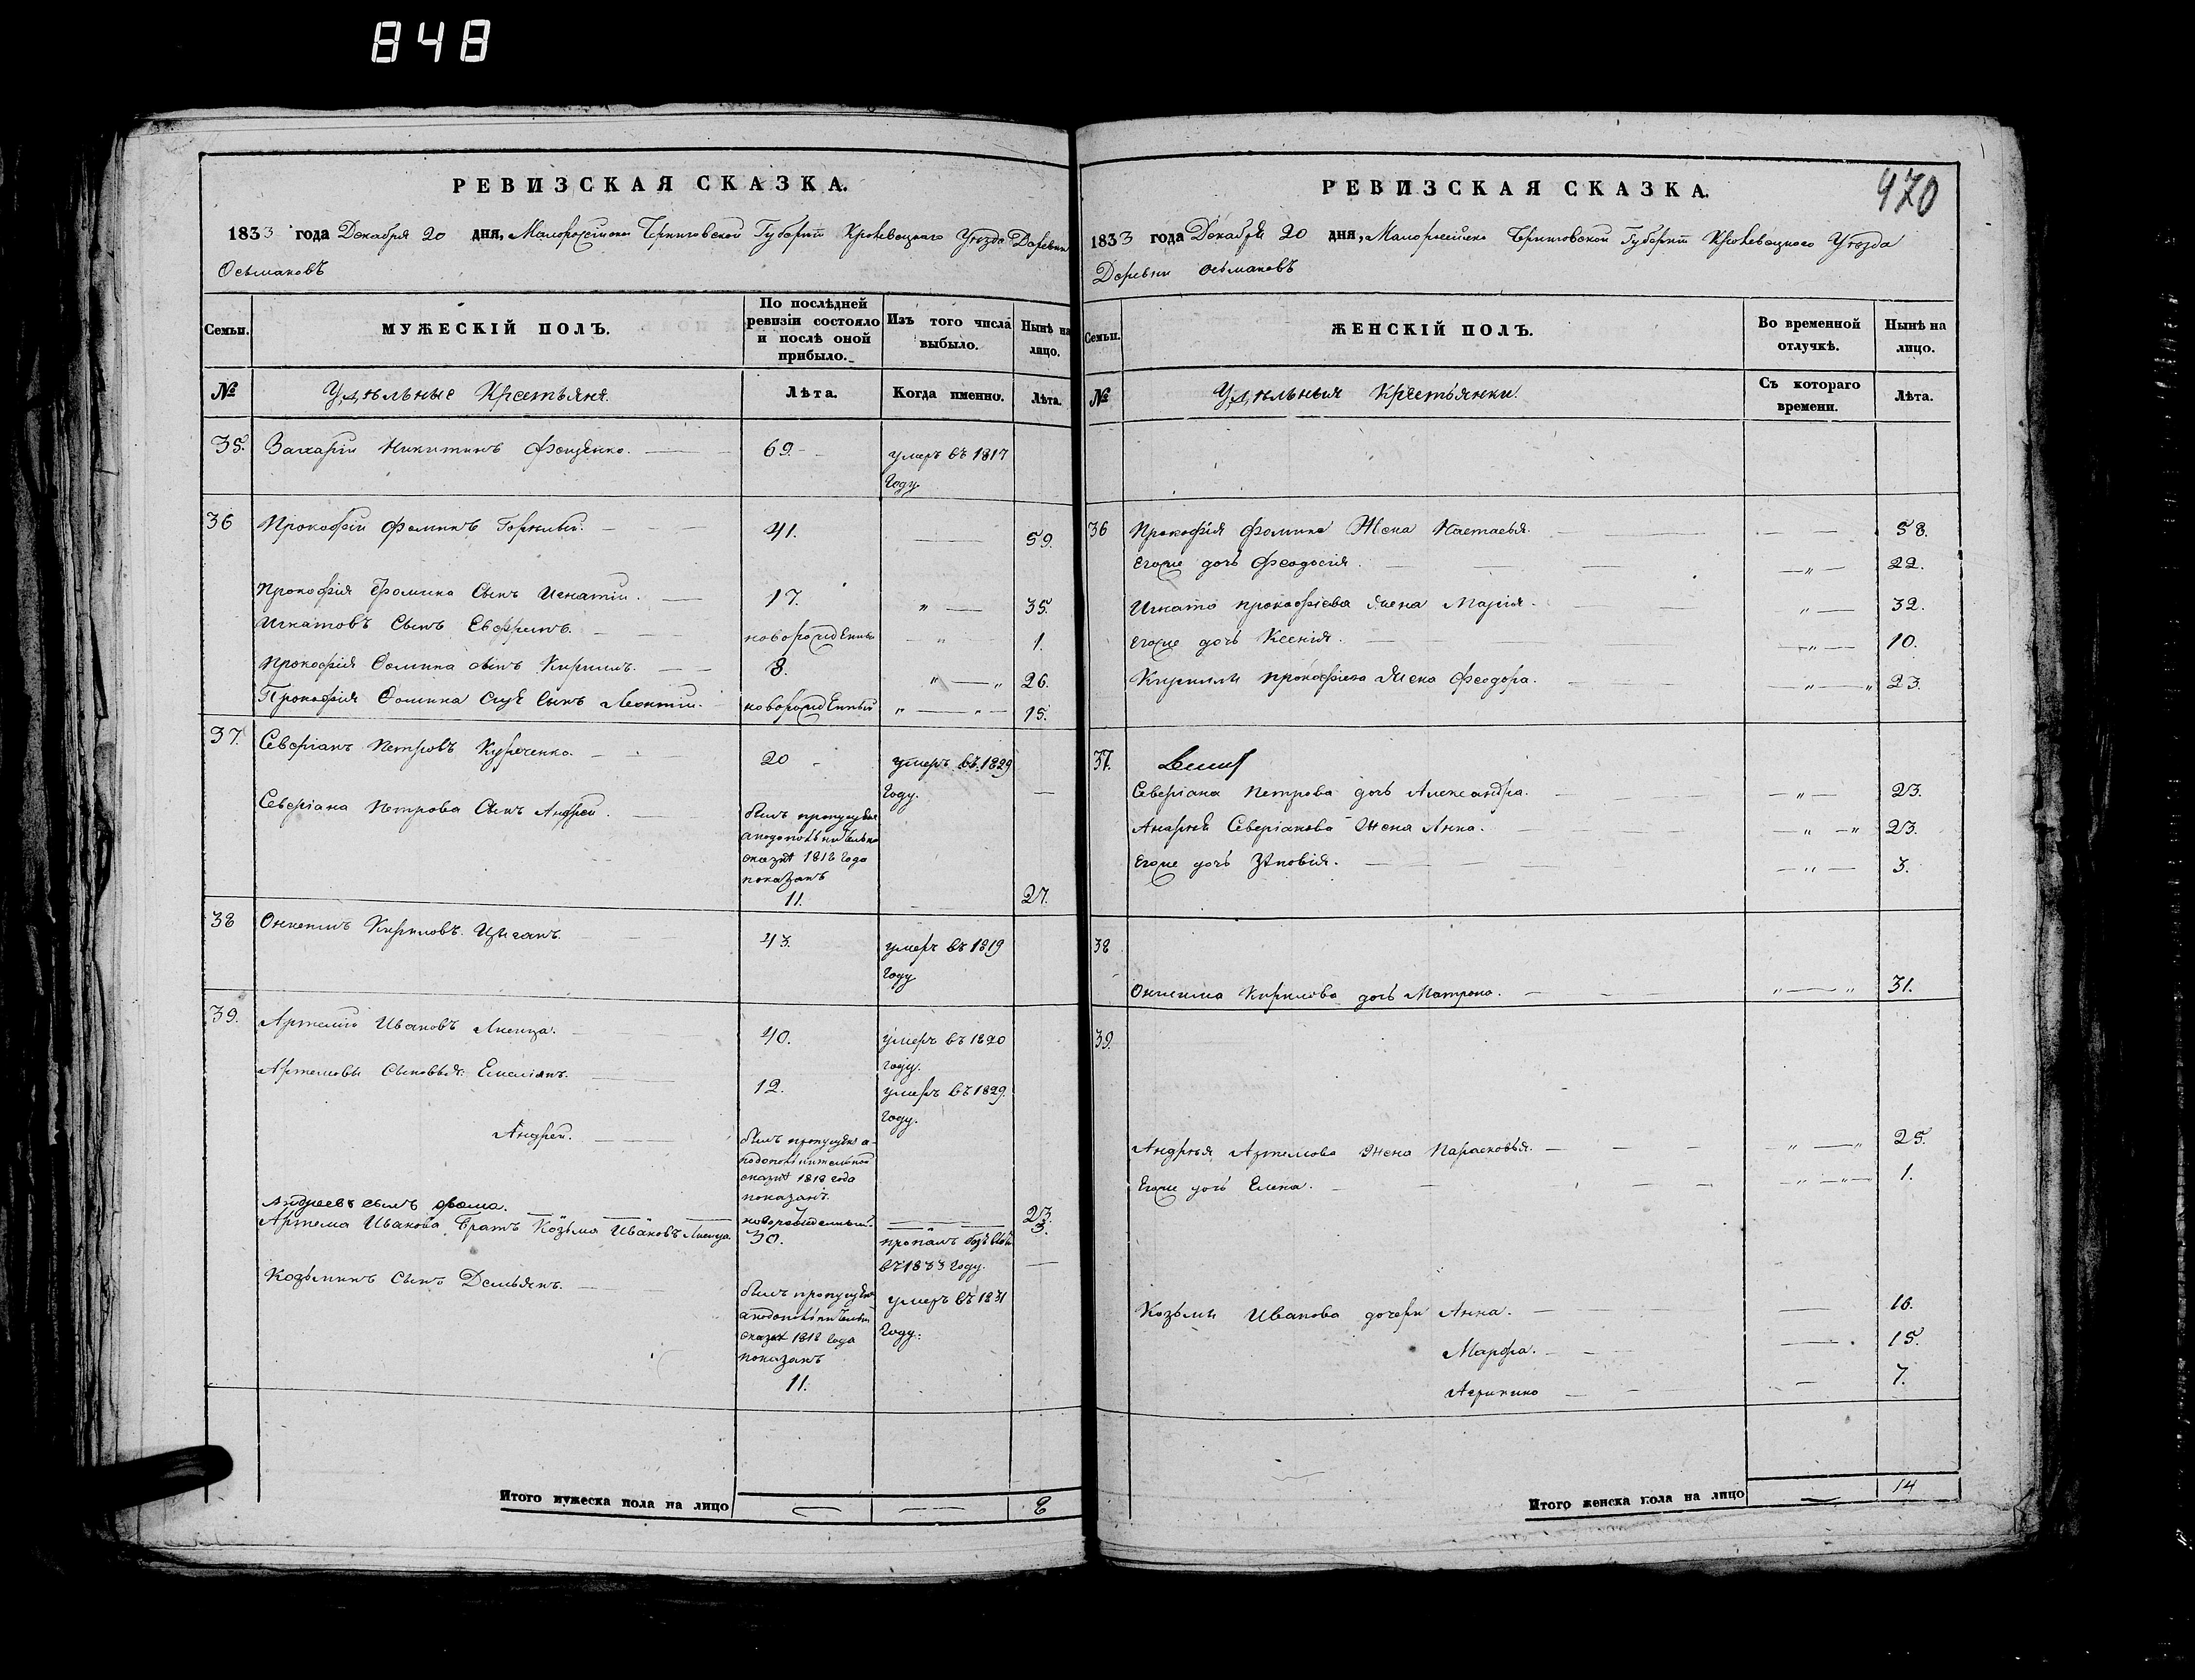 848
РЕВИЗСКАЯ СКАЗКА.
1833 года Декабря 20 дня, Малороссійско Черниговской Губерніи Кролевецкаго Уѣзда Деревни
Осьмаковъ
Семьи. МУЖЕСКІЙ ПОЛЪ. По послѣдней ревизіи состояло и послѣ оной прибыло. Изъ того числа выбыло. Нынѣ на лицо.
№ Удѣльные Крестьяня. Лѣта. Когда именно. Лѣта.
35. Захарій Никитинъ Фещенко. 69. умеръ въ 1817
Году.
36 Прокофій Фоминъ Горѣлый. 41. 59.
Прокофія Фомина Сынъ Игнатій. 17. " 35.
Игнатовъ Сынъ новорожденный " 1.
Прокофія Фомина сынъ Кирилъ. 8. " " 26.
Прокофія Фомина Сынъ Леонтій. новорожденный " " 15.
37. Северіанъ Петровъ Куреченко. 20 умеръ въ 1829
Году.
Северіана Петрова Сынъ Андрей был пропущенъ
а по дополнительной
сказкѣ 1818 года
показанъ
11. 27.
38 Онисимъ Кириловъ Цыганъ. 43. умеръ въ 1819
Году
39. Артемій Ивановъ Лисица. 40. умеръ въ 1820
году.
Артемовы Сыновья: Емеліянъ. 12. умеръ въ 1829.
Году.
Андрей. былъ пропущенъ а
по дополнительной
сказкѣ 1818 года
показанъ.
7 23.
Андреевъ сынъ Фома. новорожденный. 3.
Артема Иванова Братъ Козьма Ивановъ Лисица. 30. пропалъ безъ
въ 1833 Году.
Козьминъ Сынъ Демьянъ. былъ пропущенъ умеръ въ 1831
а по дополнительной Году.
сказкѣ 1818 года
показанъ
11.
Итого мужеска пола на лицо 8
РЕВИЗСКАЯ СКАЗКА. 470
1833 года Декабря 20 дня, Малороссійско Черниговской Губерніи Кролевецкаго Уѣзда
Деревни Осьмаковъ
Семьи. ЖЕНСКІЙ ПОЛЪ. Во временной отлучкѣ. Нынѣ на лицо.
№ Удѣльныя Крестьянки. Съ котораго времени. Лѣта.
36 Прокофія Фомина Жена Настасья. 58.
Егоже дочь Феодосія. " 22.
Игната Прокофіева жена Марія. " 32.
Егоже дочь Ксенія. " 10.
Кирилы Прокофіева жена Феодора. " " 23.
37.
Северіана Петрова дочь Александра. " 23.
Андрея Северіанова Жена Анна. " " 23.
Егоже дочь Зѣновія. " 3.
38
Онисима Кирилова дочь Матрона. " " 31.
39.
Андрея Артемова Жена Парасковья. " " 25.
Егоже дочь Елена. " " 1.
Козьмы Иванова дочери Анна. 16.
Марфа. 15.
Агрипина 7.
Итого женска пола на лицо 14